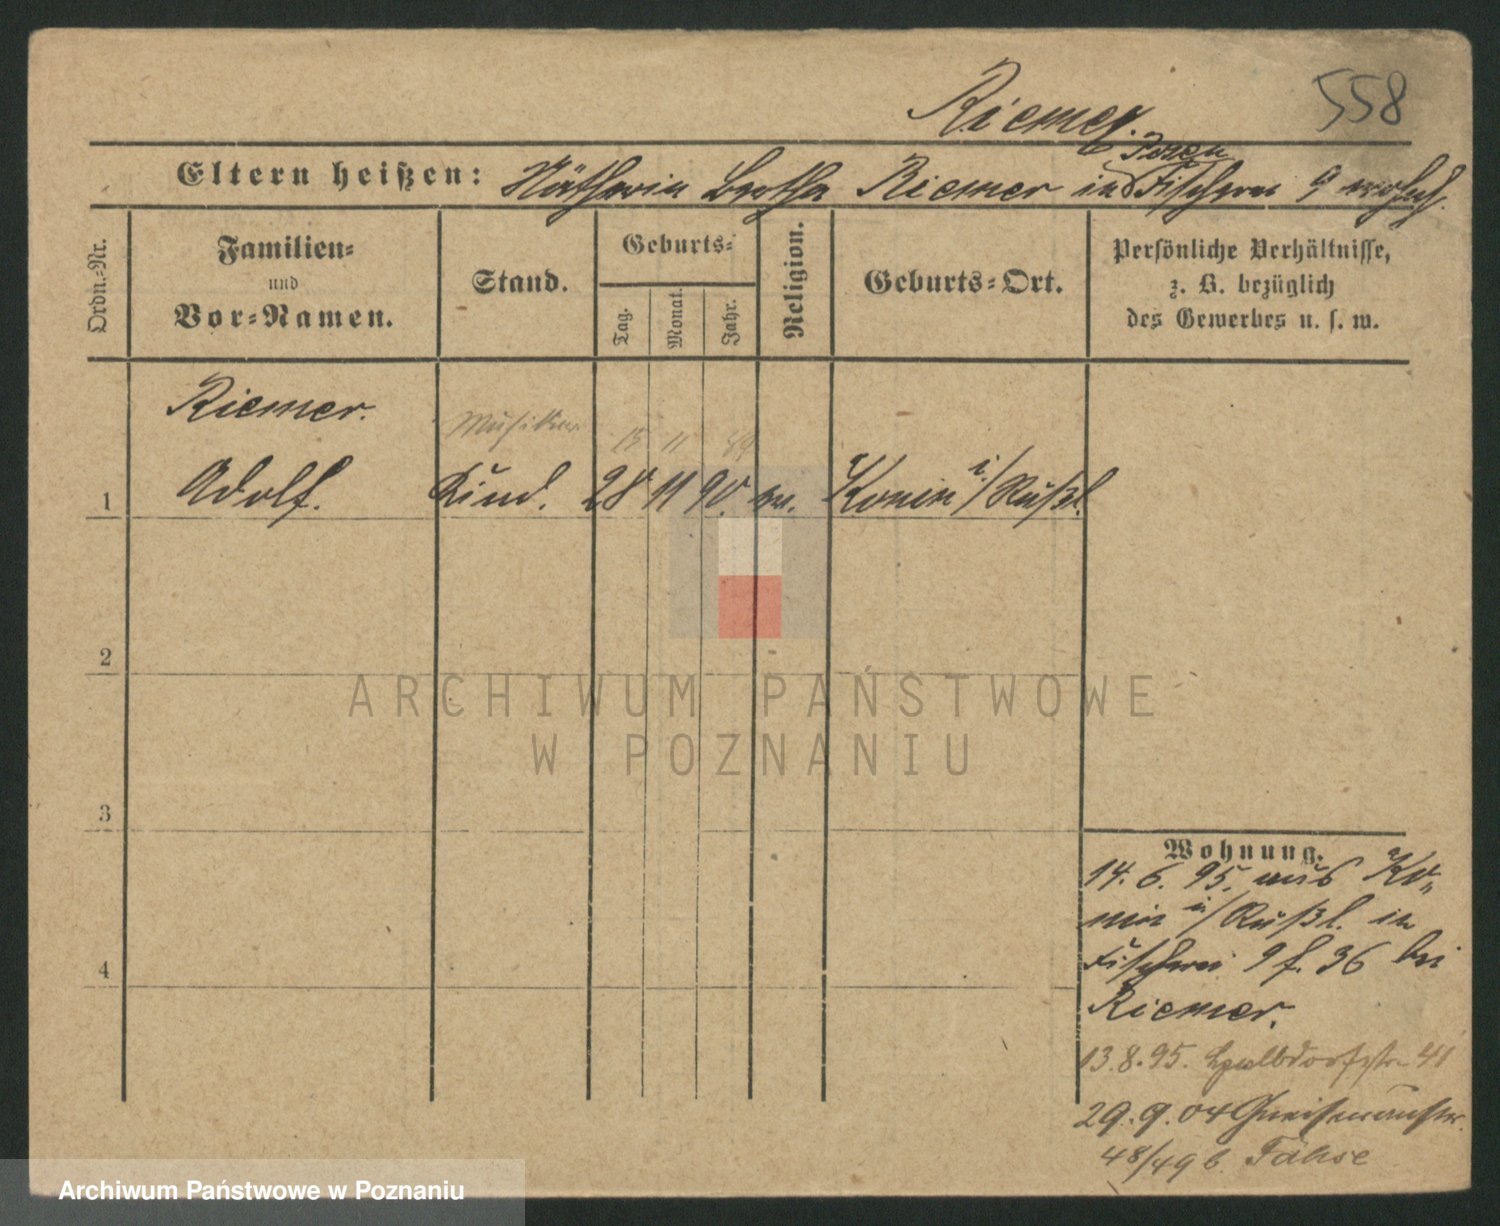 Riemer.
558
Eltern heißen: Nätherin Bertha Riemer in Posen Fischerei 9 wohnh.
Ordn.-Nr.
Familien-
und
Vor-Namen.
Stand.
Geburts-
Tag.
Monat.
Jahr.
Religion.
Geburts-Ort.
Persönliche Verhältnisse,
z. B. bezüglich
des Gewerbes u. s. w.
Riemer.
Musiker
15 11 89
1
Adolf.
Kind.
28 11 90. ev.
Konin i/Rußl.
2
3
4
ARCHIWUM PAŃSTWOWE
W POZNANIU
Wohnung.
14. 6. 95. aus Ko-
nin in/Rußl. in
Fischerei 9 f. 36 bei
Riemer.
13.8.95. Halbdorfstr 41
29.9.04 Gneisenaustr.
48/49 b.
Archiwum Państwowe w Poznaniu